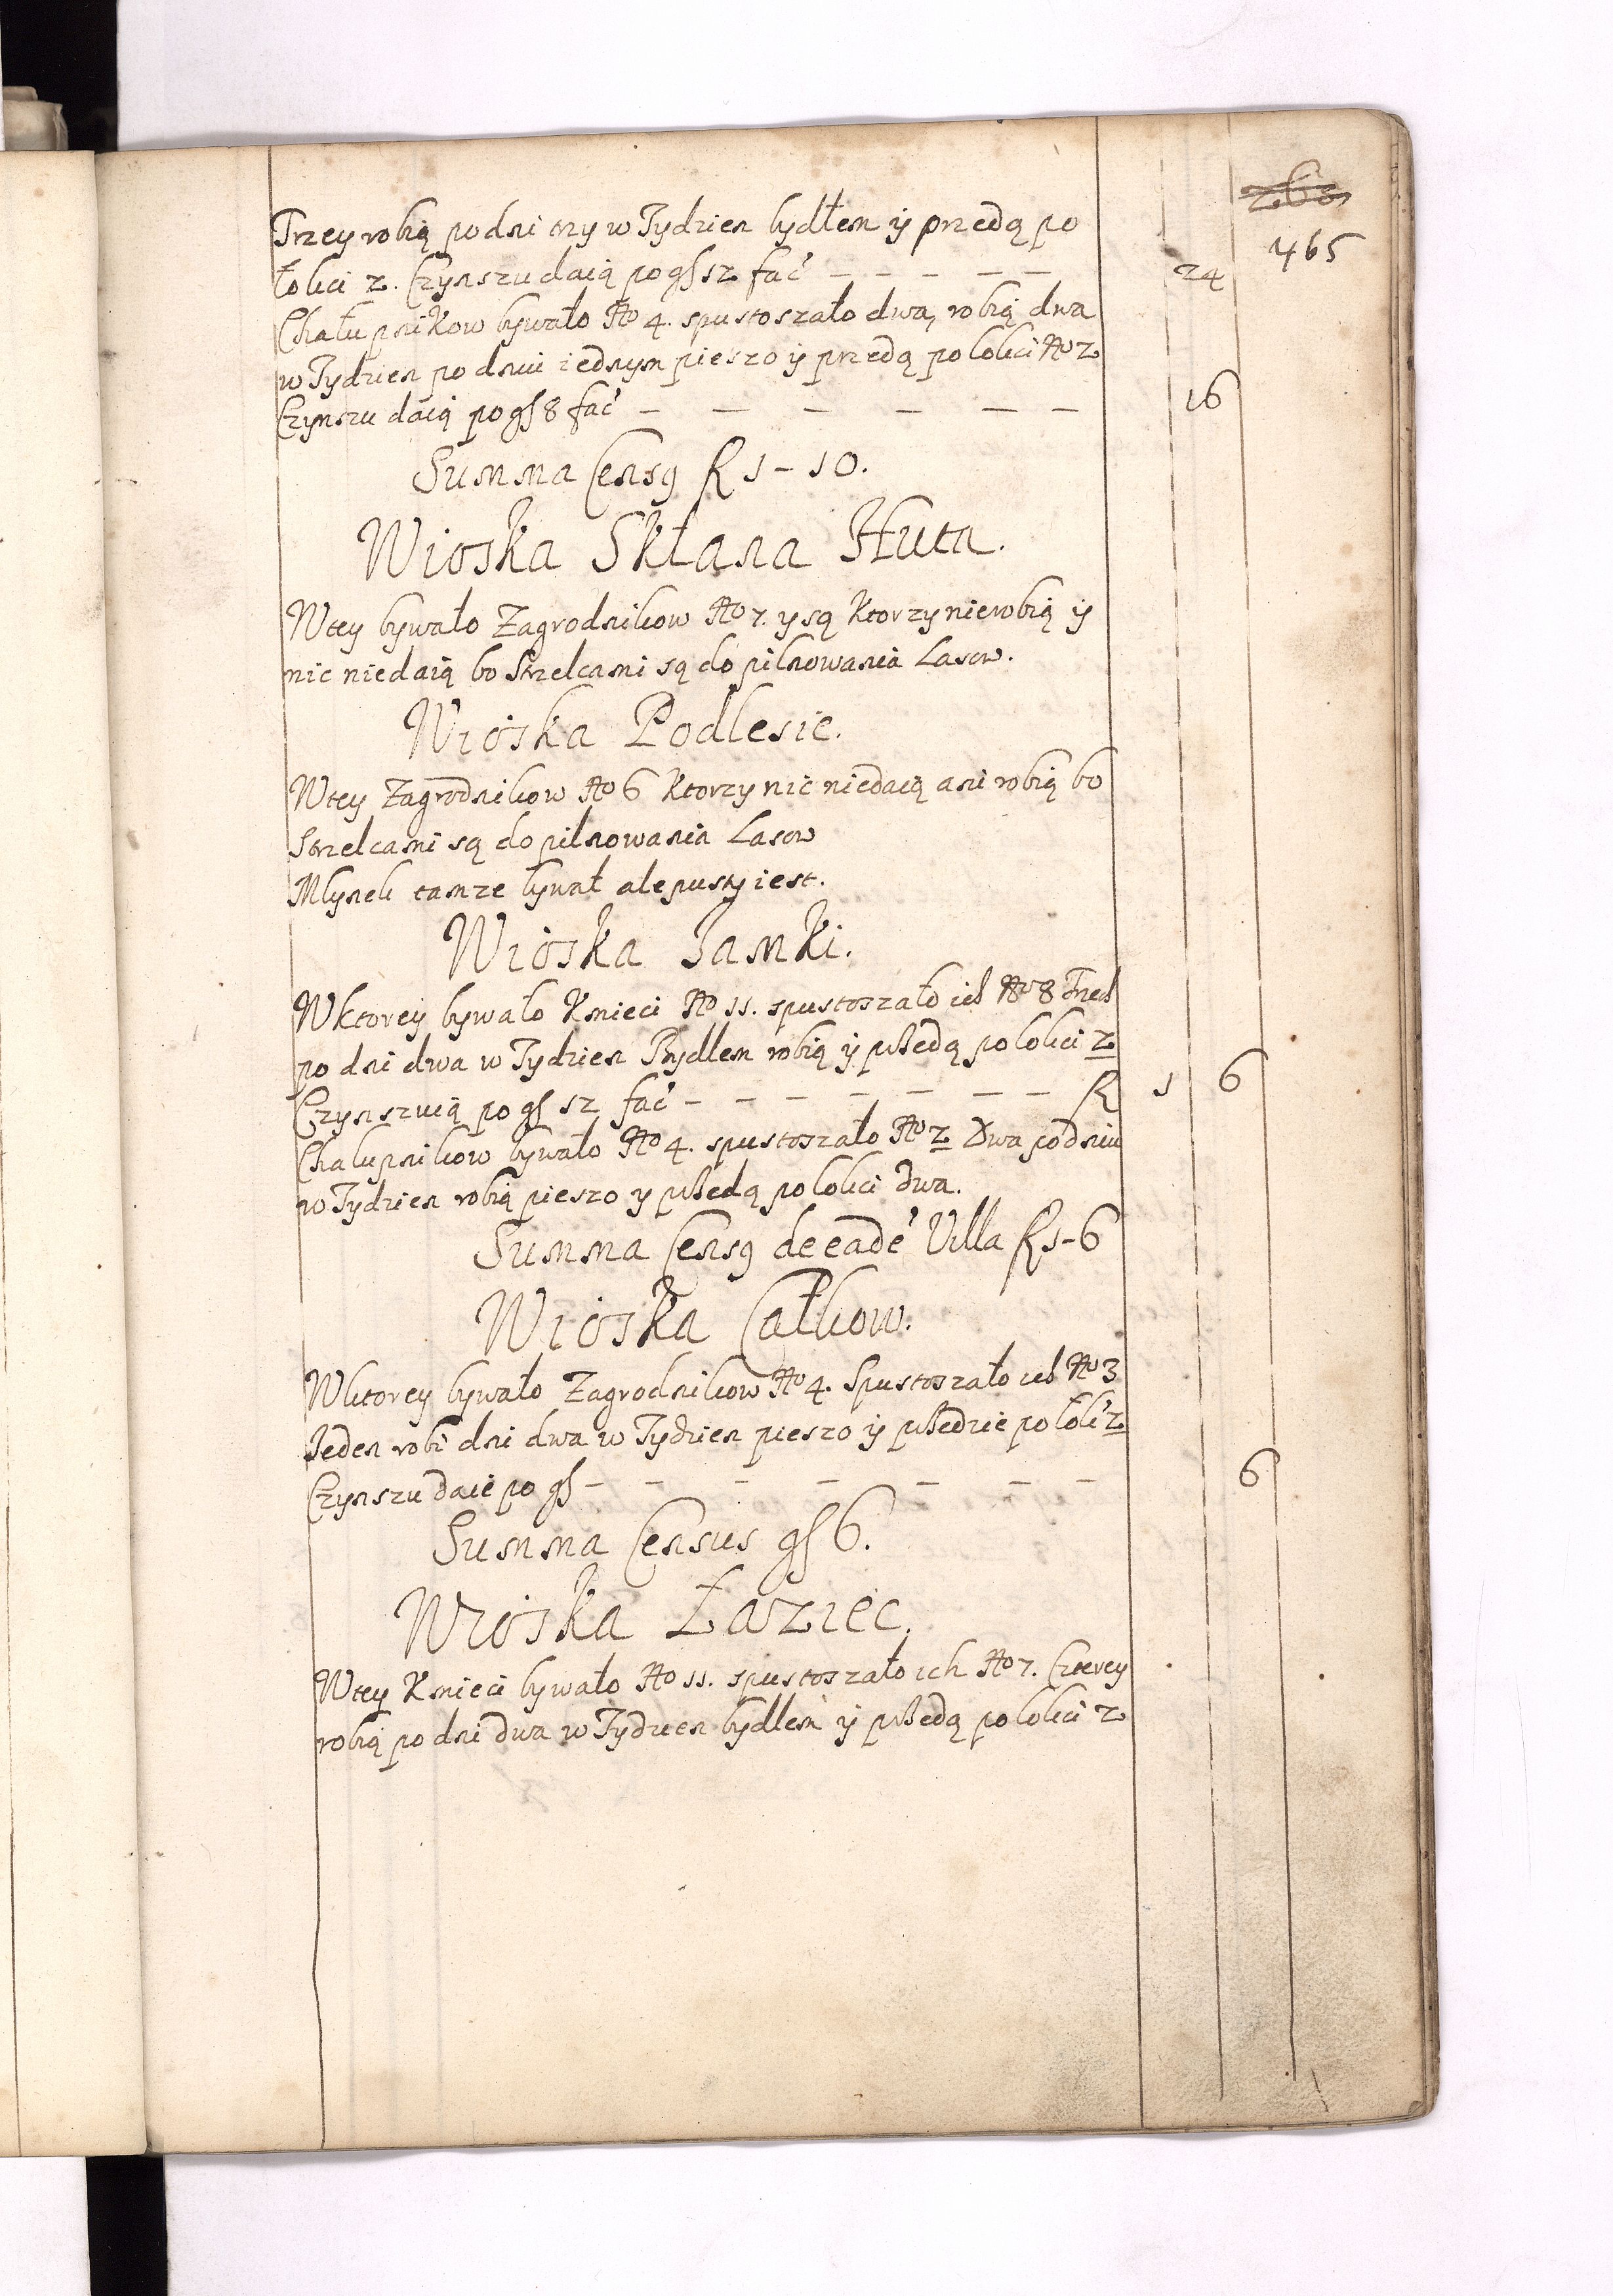 465
Trzey robią po dni trzy w Tydzien bydłem ÿ przedą po
łokci 2. Czynszu daią po gſ 12 fać – – – – – 24
Chałupnikow bywało No 4. spustoszało dwa, robią dwa
w Tydzien po dniu iednym pieszo ÿ przedą po łokci No 2
Czynszu daią po gſ 8 fać – – – – – – 16
Summa Censq R 1 – 10.
Wioska Skłana Huta.
W tey bywało Zagrodnikow No 7. y są Ktorzy nie robią ÿ
nic niedaią bo Strzelcami są do pilnowania Lasow.
Wioska Podlesie.
W tey Zagrodnikow No 6 Ktorzy nic niedaią ani robią bo
Strzelcami są do pilnowania Lasow
Mlynek tamze bywał ale pusty iest.
Wioska Jamki.
W ktorey bywało Kmieci No 11. spustoszało ich No 8 Trzech
po dni dwa w Tydzien Bydlem robią ÿ przedą po łokci 2
Czynszuią po gſ 12 fać – – – – – – – R 1 6
Chalupnikow bywało No 4. spustoszało No 2 Dwa po dniu
w Tydzien robią pieszo y przedą po łokci dwa.
Summa Censq de eadē Villa R 1 – 6
Wioska Całkow.
W ktorey bywało Zagrodnikow No 4. Spustoszało ich No 3
Jeden robi dni dwa w Tydzien pieszo ÿ przedzie po łokć 2
Czynszu daie po gſ – – – – – – – 6
Summa Census gſ 6.
Wioska Łaziec.
W tey Kmieci bywało No 11. spustoszało ich No 7. Czterey
robią po dni dwa w Tydzien bydlem ÿ przedą po łokci 2